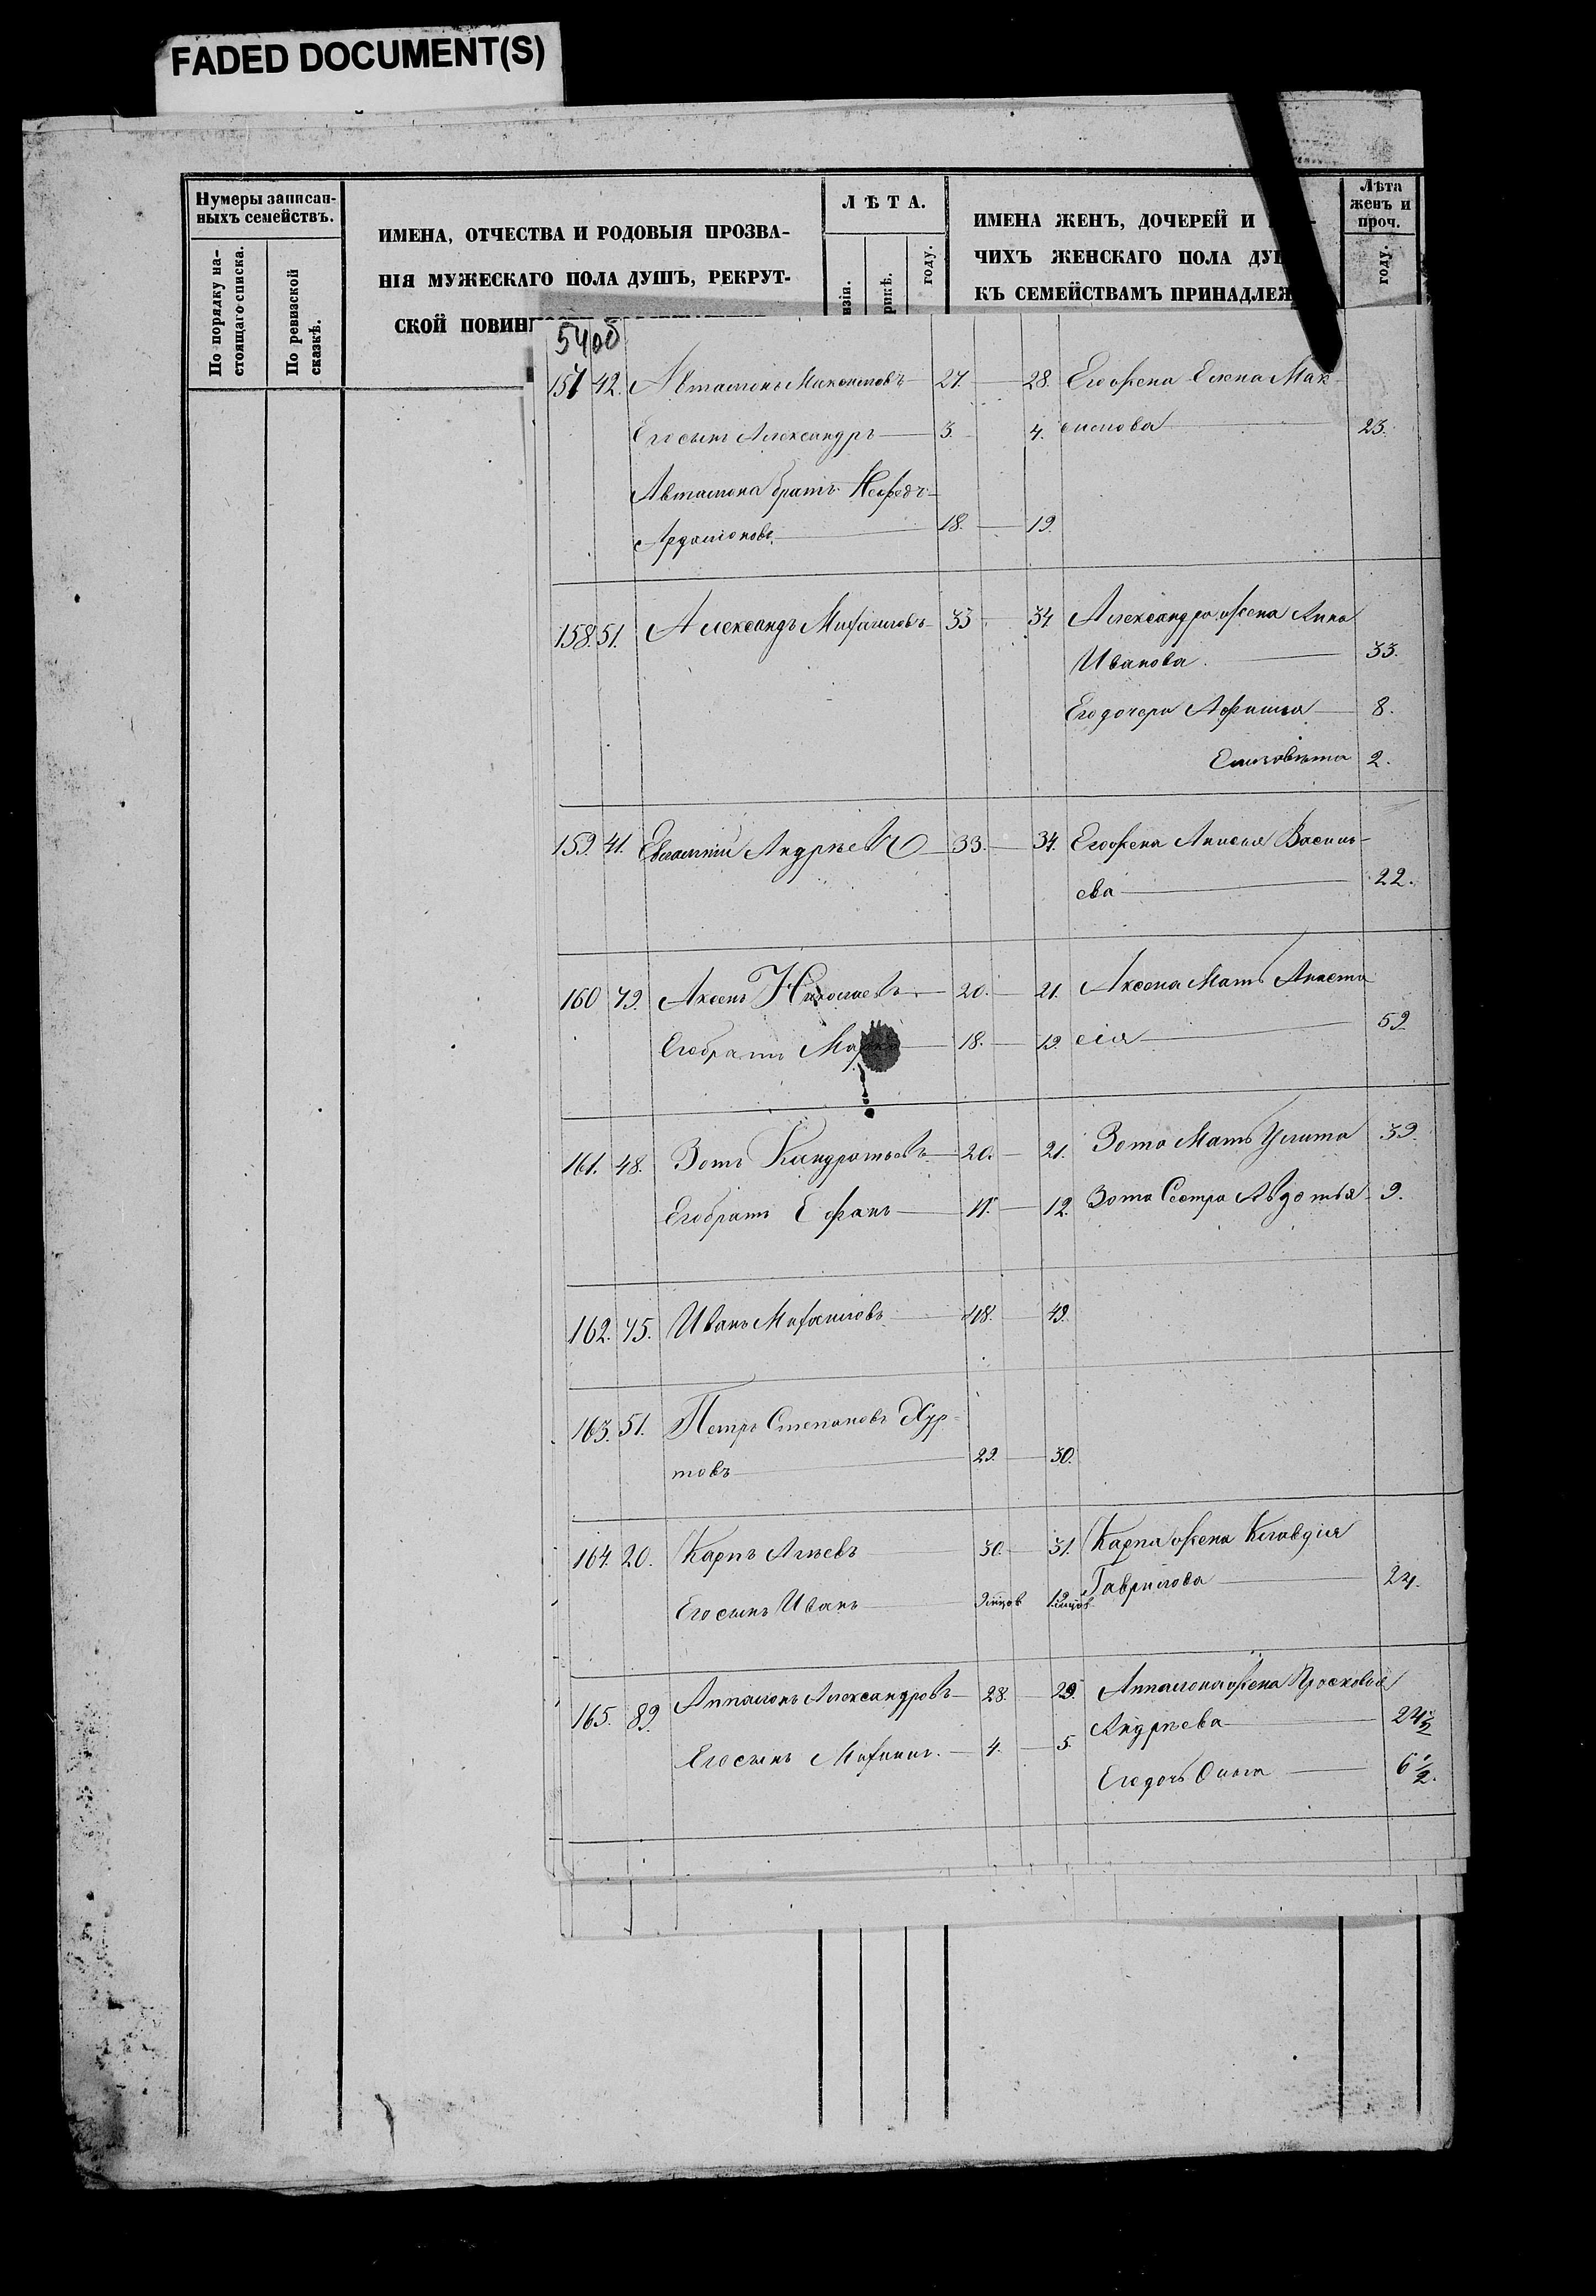 FADED DOCUMENT(S)
Нумеры записан-
ныхъ семействъ.
По порядку на-
стоящаго списка.
По ревизской
сказкѣ.
ИМЕНА, ОТЧЕСТВА И РОДОВЫЯ ПРОЗВА-
НІЯ МУЖЕСКАГО ПОЛА ДУШЪ, РЕКРУТ-
СКОЙ ПОВИН
ЛѢТА.
году.
ИМЕНА ЖЕНЪ, ДОЧЕРЕЙ И
ЧИХЪ ЖЕНСКАГО ПОЛА ДУ
КЪ СЕМЕЙСТВАМЪ ПРИНАДЛЕЖ
Лѣта
женъ и
проч.
году.
54об
157 42. Автамонъ 27. 28. Его жена Елена Мак-
Его сынъ Александръ 3. 4. симова 23.
Автамона братъ
18. 19.
158. 51. Александръ Михайловъ 33 34 Александра жена Анна
Иванова. 33.
Его дочери 8.
Елизавѣта 2.
159. 41. Евлампій Андрѣевъ 33. 34. Его жена Анисья Василь-
ева 22.
160 79. Аксенъ Николаевъ 20. 21. Аксена Мать Анаста
Его братъ 18. 19. сія 59.
161. 48. Зотъ Кандратьевъ 20. 21. Зота Мать Улита 39.
Его братъ 11. 12. Зота Сестра Авдотья 9.
162. 75. Иванъ Михайловъ 48. 49.
163. 51. Петръ Степановъ
товъ 29. 30.
164. 20. Карпъ Агѣевъ 30. 31. Карпа жена Клавдія
Его сынъ Иванъ Гаврилова 24.
165. 89. Аппалонъ Александровъ 28. 29. Аппалона жена Просковья
Андрѣева 24½
Его сынъ Михаилъ. 4. 5.
Его дочь Ольга 6½.